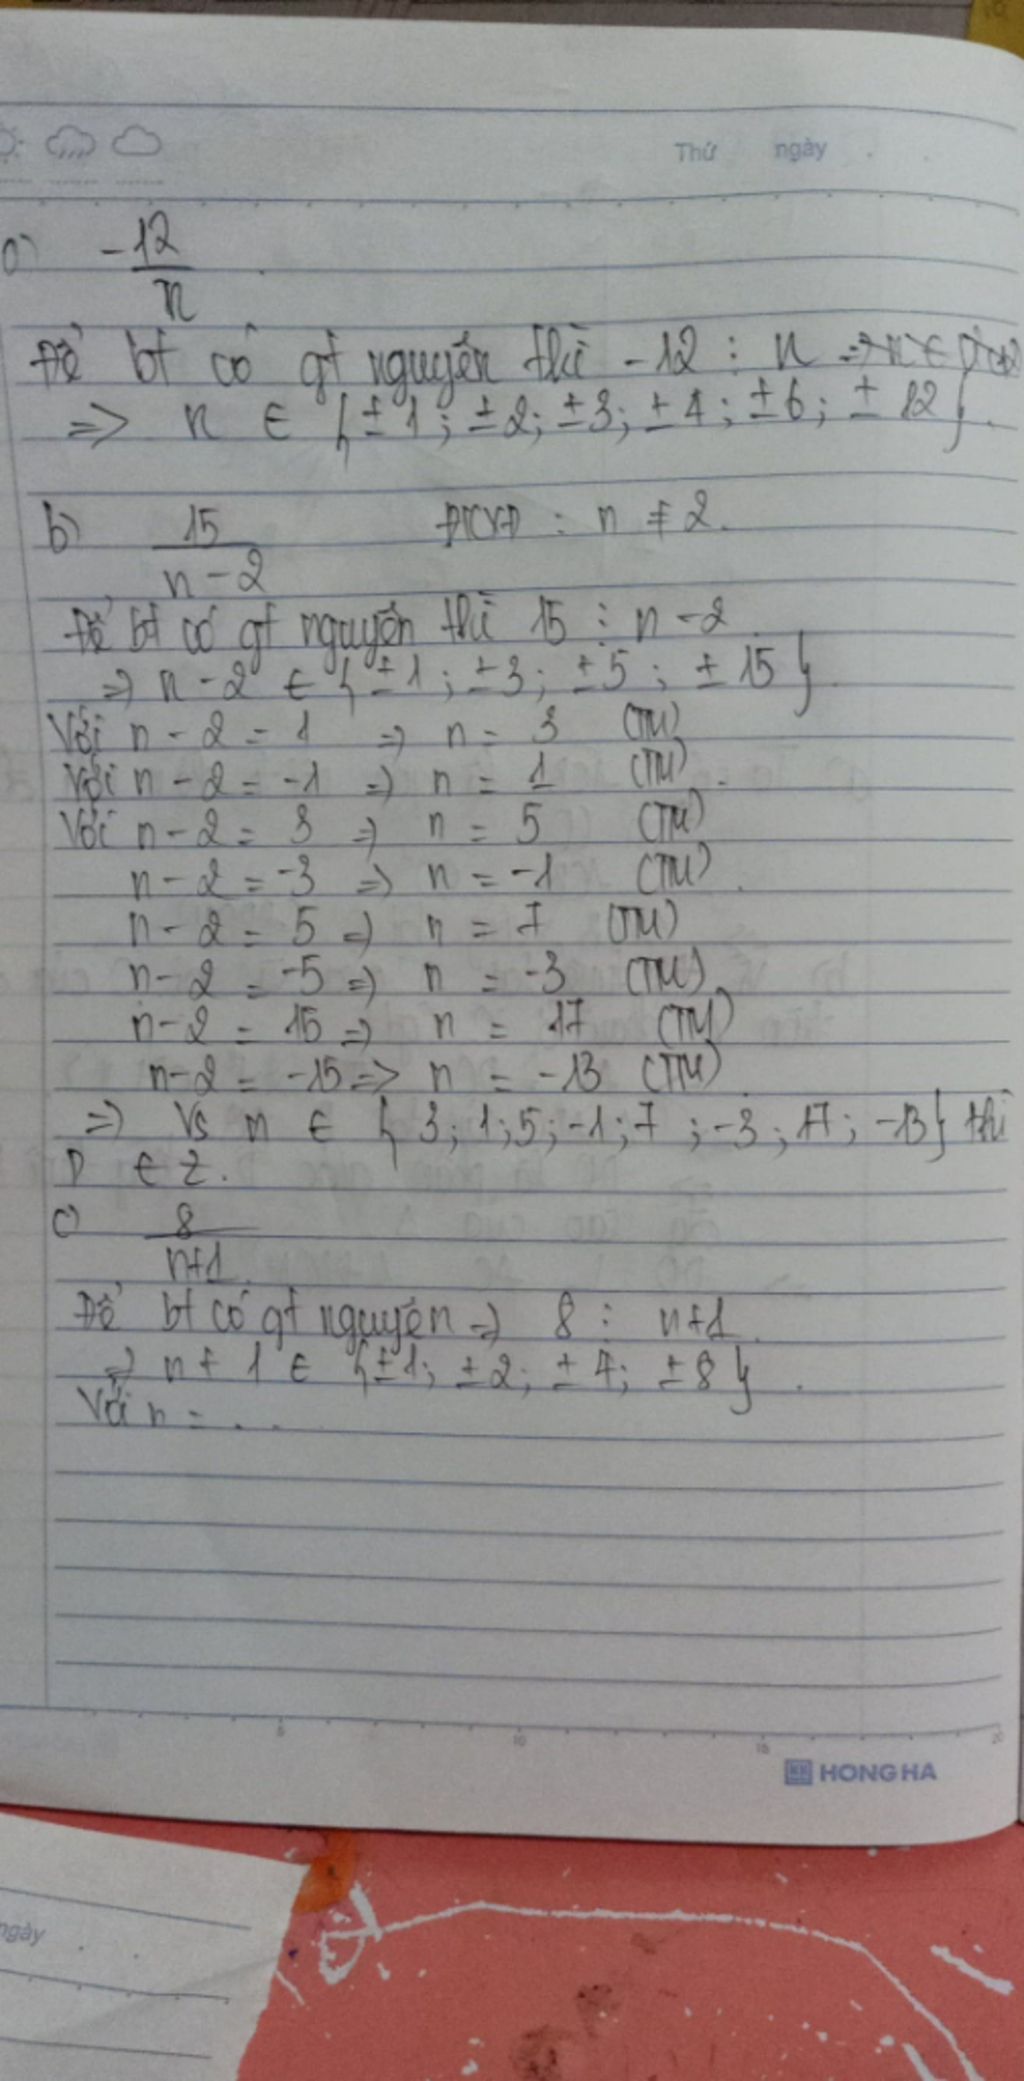 Thứ ngày
a) -12/n
Để bt có gt nguyên thì -12 ⋮ n
=> n ∈ {±1; ±2; ±3; ±4; ±6; ±12}.
b) 15/n-2 ĐKXĐ : n ≠ 2.
Để bt có gt nguyên thì 15 ⋮ n-2
=> n-2 ∈ {±1; ±3; ±5; ±15}.
Với n-2 = 1 => n = 3 (TM)
Với n-2 = -1 => n = 1 (TM).
Với n-2 = 3 => n = 5 (TM)
n-2 = -3 => n = -1 (TM).
n-2 = 5 => n = 7 (TM)
n-2 = -5 => n = -3 (TM)
n-2 = 15 => n = 17 (TM)
n-2 = -15 => n = -13 (TM).
=> Vs n ∈ {3; 1; 5; -1; 7; -3; 17; -13} thì
D ∈ Z.
c) 8/n+1
Để bt có gt nguyên => 8 ⋮ n+1.
=> n+1 ∈ {±1; ±2; ±4; ±8}.
Với n = ...
5 10 15 20
HONG HA
ngày